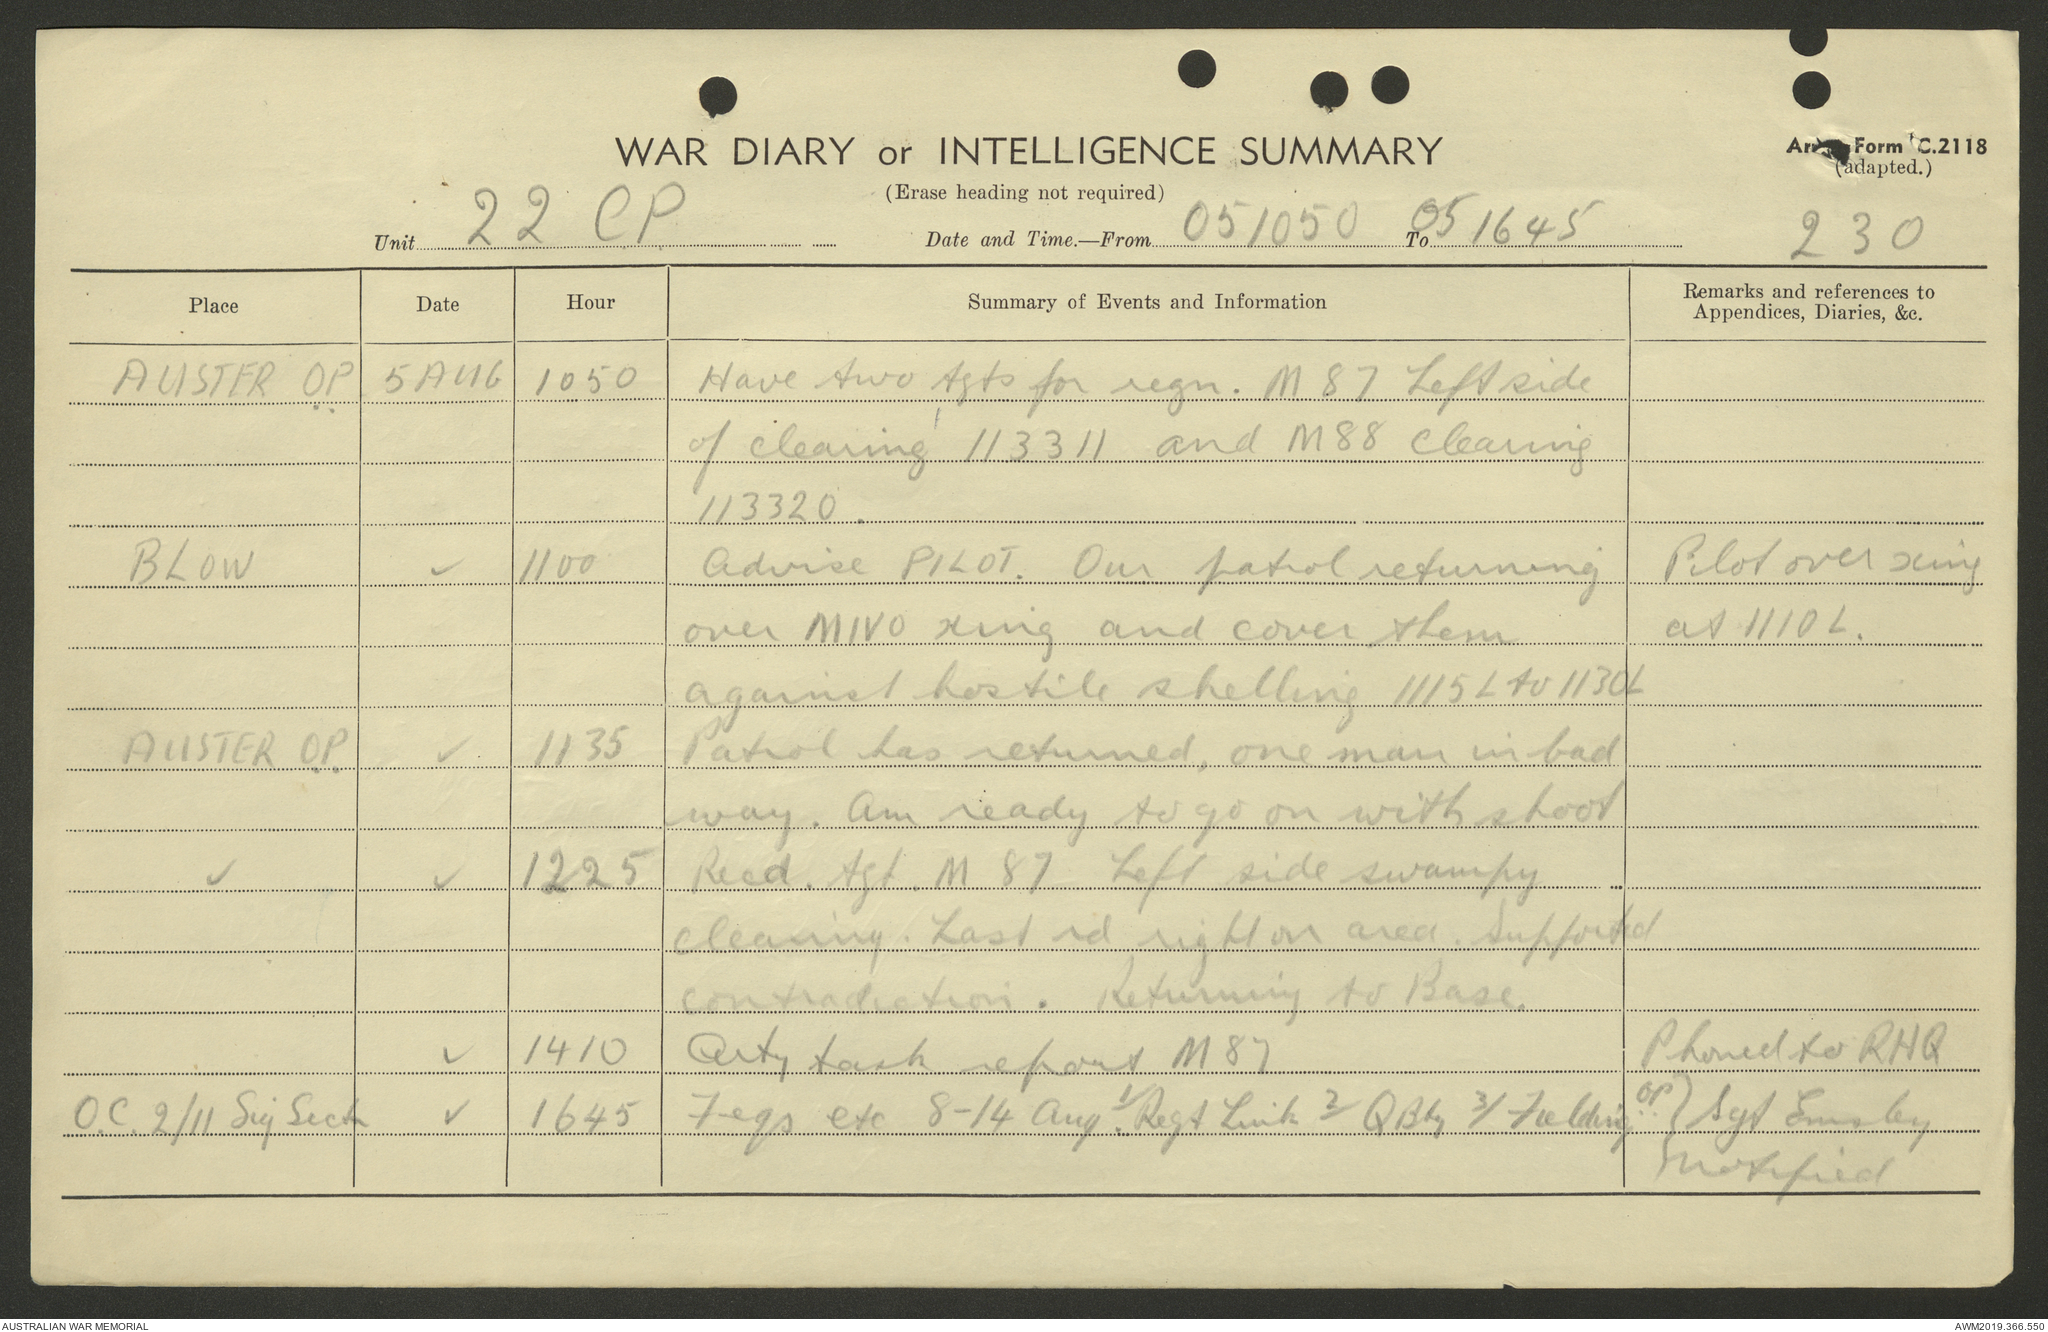 WAR DIARY or INTELLIGENCE SUMMARY
(Erase heading not required)
Army Form C.2118
(adapted.)
Unit 22 CP Date and Time.—From 051050 To 051645 230
Place Date Hour Summary of Events and Information Remarks and references to
Appendices, Diaries, &c.
AUSTER OP 5 AUG 1050 Have two tgts for regn. M 87 Left side
of clearing 113311 and M88 clearing
113320.
BLOW ✓ 1100 Advise PILOT. Our patrol returning Pilot over xing
over MIVO xing and cover them at 1110L.
against hostile shelling 1115L to 1130L
AUSTER O.P. ✓ 1135 Patrol has returned, one man in bad
way. Am ready to go on with shoot
✓ ✓ 1225 Recd. tgt. M 87 Left side swampy
clearing. Last rd right on area. Supported
contradiction. Returning to Base.
✓ 1410 Arty task report M87 Phoned to RHQ
O.C. 2/11 Sig Sectn ✓ 1645 Feqs etc 8-14 Aug. 1/ Regt Link 2/ Q Bty 3/ Fielding OP } Sgt Emsley
notified
AUSTRALIAN WAR MEMORIAL
AWM2019.366.550